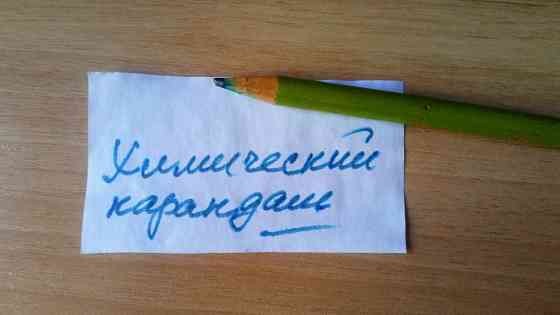 Химический
карандаш